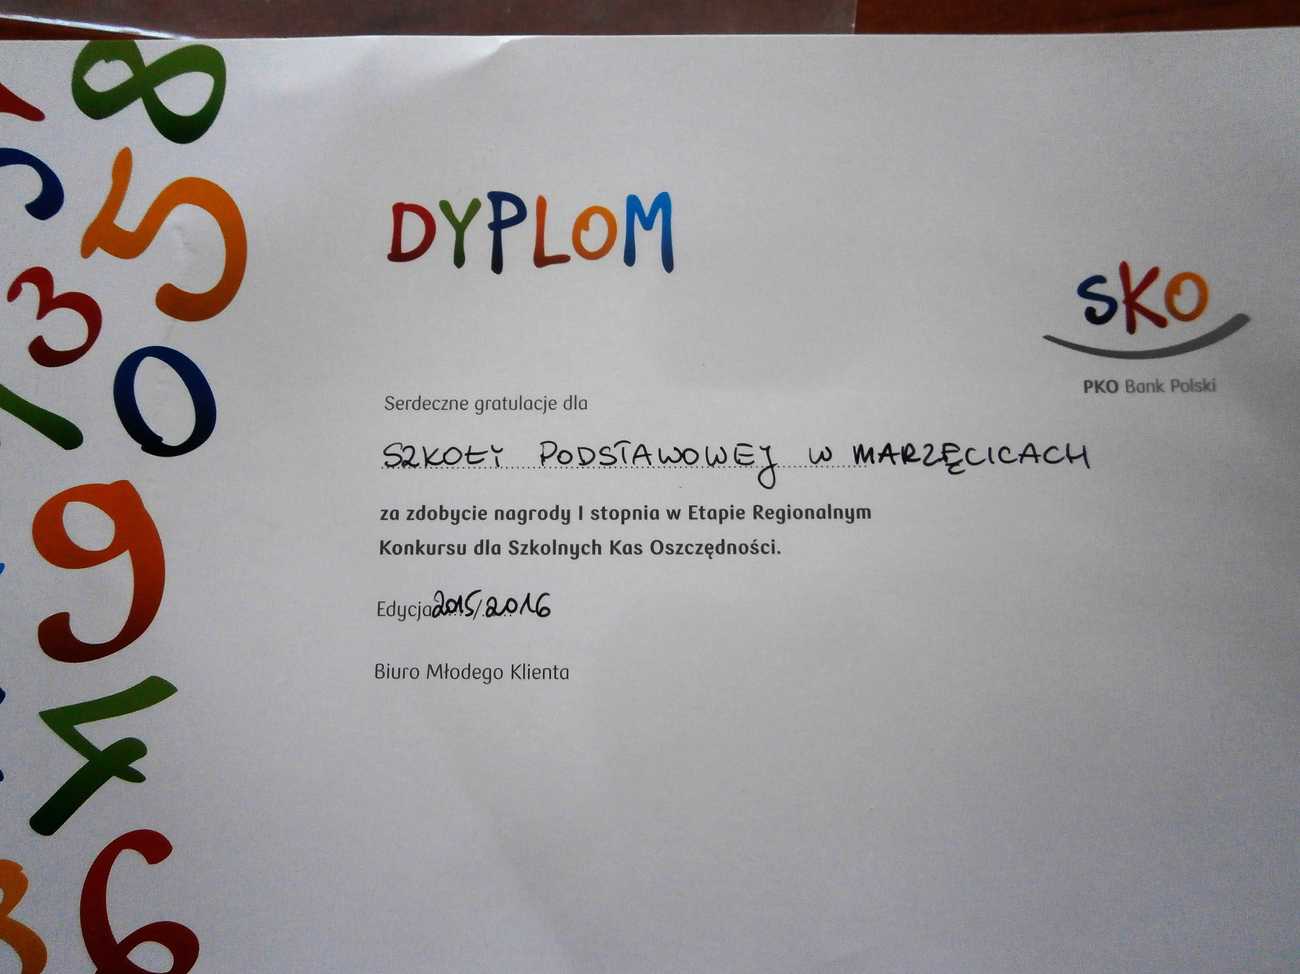 DYPLOM
SKO
PKO Bank Polski
Serdeczne gratulacje dla
SZKOŁY PODSTAWOWEJ W MARZĘCICACH
za zdobycie nagrody I stopnia w Etapie Regionalnym
Konkursu dla Szkolnych Kas Oszczędności.
Edycja 2015/2016
Biuro Młodego Klienta
8
5
3
0
9
4
6